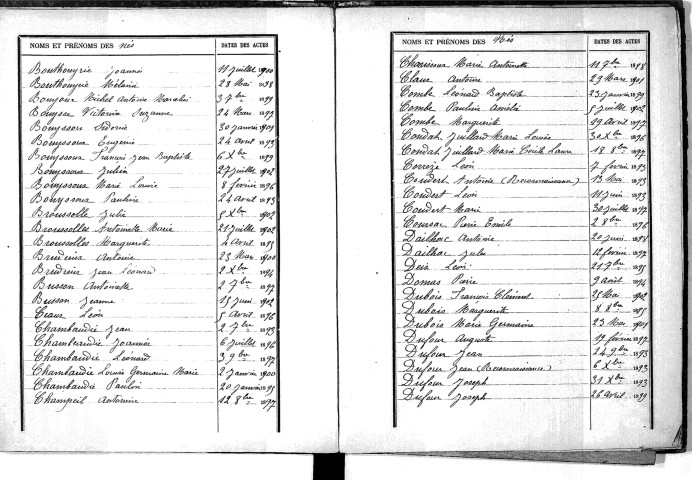 NOMS ET PRÉNOMS DES nés DATES DES ACTES
Bouthouyrie Joannés 11 juillet 1900
Bouthouyrie Mélanie 28 Mai 1898
Bouyjoux Michel Antoine 3 7bre 1899
Bouysse Victorine Suzanne 24 Mars 1895
Bouyssoux Sidonie 30 janvier 1901
Bouyssoux Eugenie 24 avril 1893
Bouyssoux Francois Jean Baptiste 6 Xbre 1899
Bouyssoux Julien 27 juillet 1902
Bouyssoux Marie Louise 8 fevrier 1896
Bouyssoux Pauline 24 avril 1893
Broussolle Julie 5 Xbre 1902
Broussolles Antoinette Marie 21 juillet 1902
Broussolles Marguerite 4 Avril 1895
Antoine 23 Mars 1900
Jean Léonard 2 Xbre 1894
Buisson Antoinette 2 7bre 1897
Buisson Jeanne 15 juin 1902
Ceaux Léon 5 Avril 1896
Chambaudie Jean 2 7bre 1893
Chambaudie Joannés 6 juillet 1896
Chambaudie Léonard 3 9bre 1897
Chambaudie Louise Germaine Marie 2 janvier 1900
Chambaudie Paulin 20 janvier 1895
Champeil Antonine 12 8bre 1897
NOMS ET PRÉNOMS DES Nés DATES DES ACTES
Marie Antoinette 11 7bre 1898
Claux Antoine 29 Mars 1901
Combe Léonard Baptiste 23 janvier 1899
Combe Pauline Amélie 5 juillet 1902
Combe Marguerite 19 Avril 1897
Condat Juillard Marie Louise 30 Xbre 1896
Condat Juillard Marie Laure 18 8bre 1897
Correze Léon 7 fevrier 1893
Coudert Antoine (Reconnaissance) 13 Mai 1893
Coudert Léon 11 juin 1893
Coudert Marie 30 juillet 1897
Coursac Pierre Emile 2 8bre 1896
Dailhac Antoine 20 juin 1898
Dailhac Jules 12 fevrier 1897
Deix Léon 21 7bre 1895
Domas Pierre 9 avril 1894
Dubois François Clément 25 Mai 1902
Dubois Marguerite 8 8bre 1895
Dubois Marie Germaine 23 Mai 1901
Dufour Auguste 17 fevrier 1897
Dufour Jean 24 9bre 1893
Dufour Jean (Reconnaissance) 6 Xbre 1893
Dufour Joseph 31 Xbre 1893
Dufour Joseph 26 Avril 1899